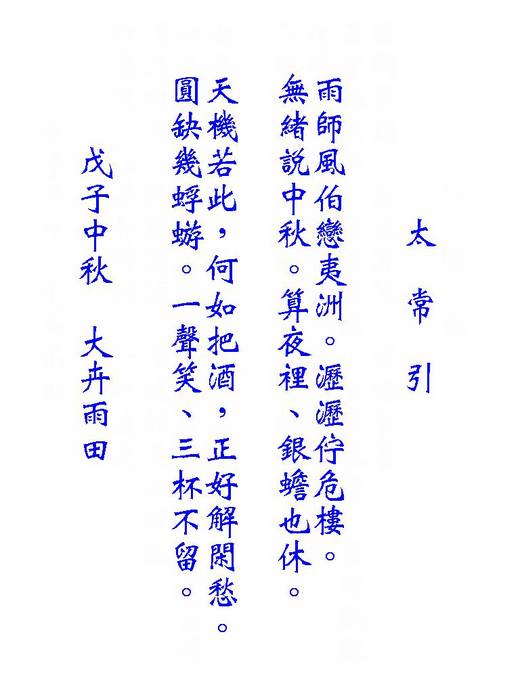 太常引
雨師風伯戀夷洲。瀝瀝佇危樓。
無緒說中秋。算夜裡、銀蟾也休。
天機若此，何如把酒，正好解閑愁。
圓缺幾蜉蝣。一聲笑、三杯不留。
戊子中秋　大卉雨田